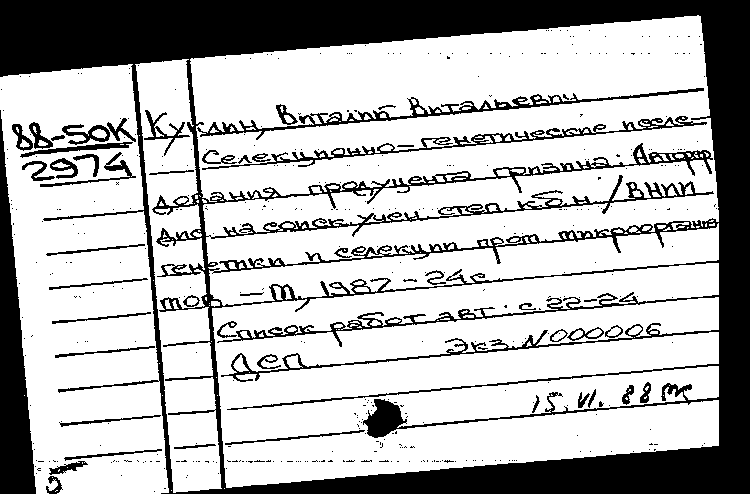 88-50К
2974
Куклин, Виталий Витальевич
Селекционно-генетические иссле-
дования продуцента гризина: Автореф
дис. на соиск учен. степ. к.б.н / ВНИИ
генетики и селекции пром. микроорганиз
мов. - М, 1987 - 24с
Список работ авт.: с. 22-24
Деп Экз. N 000006
15.VI.88
5